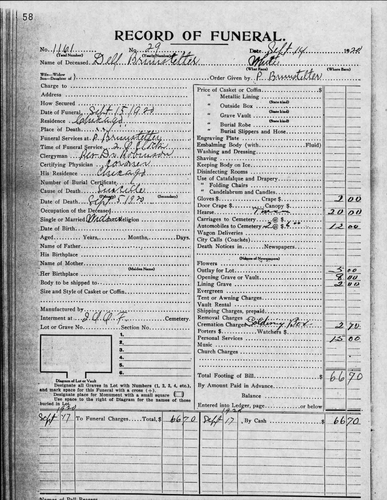 58
RECORD OF FUNERAL.
No. 1161 No. 29 Date Sept. 14 1920
(Total Number) (Yearly Number)
Name of Deceased Dell Brunstetter White
(What Race) (Where Born)
Wife—Widow
Son—Daughter of Order Given by P. Brunstetter
Charge to
Address
How Secured
Date of Funeral Sept. 15 1920
Residence Chicago
Place of Death
Funeral Services at P. Brunstetter
Time of Funeral Service 2
Clergyman Rev. Robinson
Certifying Physician Coroner
His Residence Chicago
Number of Burial Certificate
Cause of Death
(Secondary)
Date of Death Sept. 1920
Occupation of the Deceased
Single or Married Religion
Aged Years, Months, Days.
Name of Father
His Birthplace
Name of Mother
(Maiden Name)
Her Birthplace
Body to be shipped to
Size and Style of Casket or Coffin
Manufactured by
Interment at I.O.O.F. Cemetery.
Lot or Grave No. Section No.
Diagram of Lot or Vault
Designate all Graves in Lot with Numbers (1, 2, 3, 4, etc.),
and mark space for this Funeral with a cross (+)
Designate place for Monument with a small square
Use space to the right of Diagram for the names of those
buried in Lot.
Price of Casket or Coffin $
" Metallic Lining
(State kind)
" Outside Box
(State kind)
" Grave Vault
(State kind)
" Burial Robe
" Burial Slippers and Hose
Engraving Plate
Embalming Body (with Fluid)
Washing and Dressing
Shaving
Keeping Body on Ice
Disinfecting Rooms
Use of Catafalque and Drapery
" Folding Chairs
" Candelabrum and Candles
Gloves $ Crape $ 2 00
Door Crape $ Canopy $
Hearse 20 00
Carriages to Cemetery @ $
Automobiles to Cemetery 2 @ $ 6 12 00
Wagon Deliveries
City Calls (Coaches)
Death Notices in Newspapers
(Names of Newspapers)
Flowers
Outlay for Lot
Opening Grave or Vault
Lining Grave 2 00
Evergreen
Tent or Awning Charges
Vault Rental
Shipping Charges, prepaid
Removal Charges
Cremation Charges Box 2 70
Porters $ Watchers $
Personal Services 15 00
Music
Church Charges
Total Footing of Bill $ 66 70
By Amount Paid in Advance
Balance $
Entered into Ledger, page or below
1920 1920
Sept. 17 To Funeral Charges. Total, $ 66 70 Sept. 17 By Cash $ 66 70